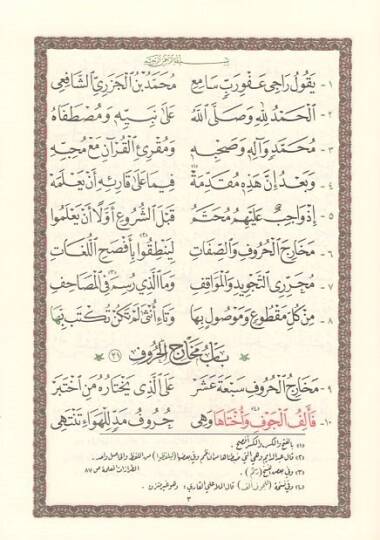 بسم الله الرحمن الرحيم
١- يَقُولُ رَاجِي عَفْوِ رَبٍّ سَامِعِ مُحَمَّدُ بْنُ الْجَزَرِيِّ الشَّافِعِي
٢- الْحَمْدُ لِلَّهِ وَصَلَّى اللَّهُ عَلَى نَبِيِّهِ وَمُصْطَفَاهُ
٣- مُحَمَّدٍ وَآلِهِ وَصَحْبِهِ وَمُقْرِئِ الْقُرْآنِ مَعْ مُحِبِّهِ
٤- وَبَعْدُ إِنَّ هَذِهِ مُقَدِّمَهْ فِيمَا عَلَى قَارِئِهِ أَنْ يَعْلَمَهْ
٥- إِذْ وَاجِبٌ عَلَيْهِمُ مُحَتَّمُ قَبْلَ الشُّرُوعِ أَوَّلًا أَنْ يَعْلَمُوا
٦- مَخَارِجَ الْحُرُوفِ وَالصِّفَاتِ لِيَنْطِقُوا بِأَفْصَحِ اللُّغَاتِ
٧- مُحَرِّرِي التَّجْوِيدِ وَالْمَوَاقِفِ وَمَا الَّذِي رُسِمَ فِي الْمَصَاحِفِ
٨- مِنْ كُلِّ مَقْطُوعٍ وَمَوْصُولٍ بِهَا وَتَاءِ أُنْثَى لَمْ تَكُنْ تُكْتَبْ بِهَا
بَابُ مَخَارِجِ الْحُرُوفِ
٩- مَخَارِجُ الْحُرُوفِ سَبْعَةَ عَشَرْ عَلَى الَّذِي يَخْتَارُهُ مَنِ اخْتَبَرْ
١٠- فَأَلِفُ الْجَوْفِ وَأُخْتَاهَا وَهِي حُرُوفُ مَدٍّ لِلْهَوَاءِ تَنْتَهِي
٣